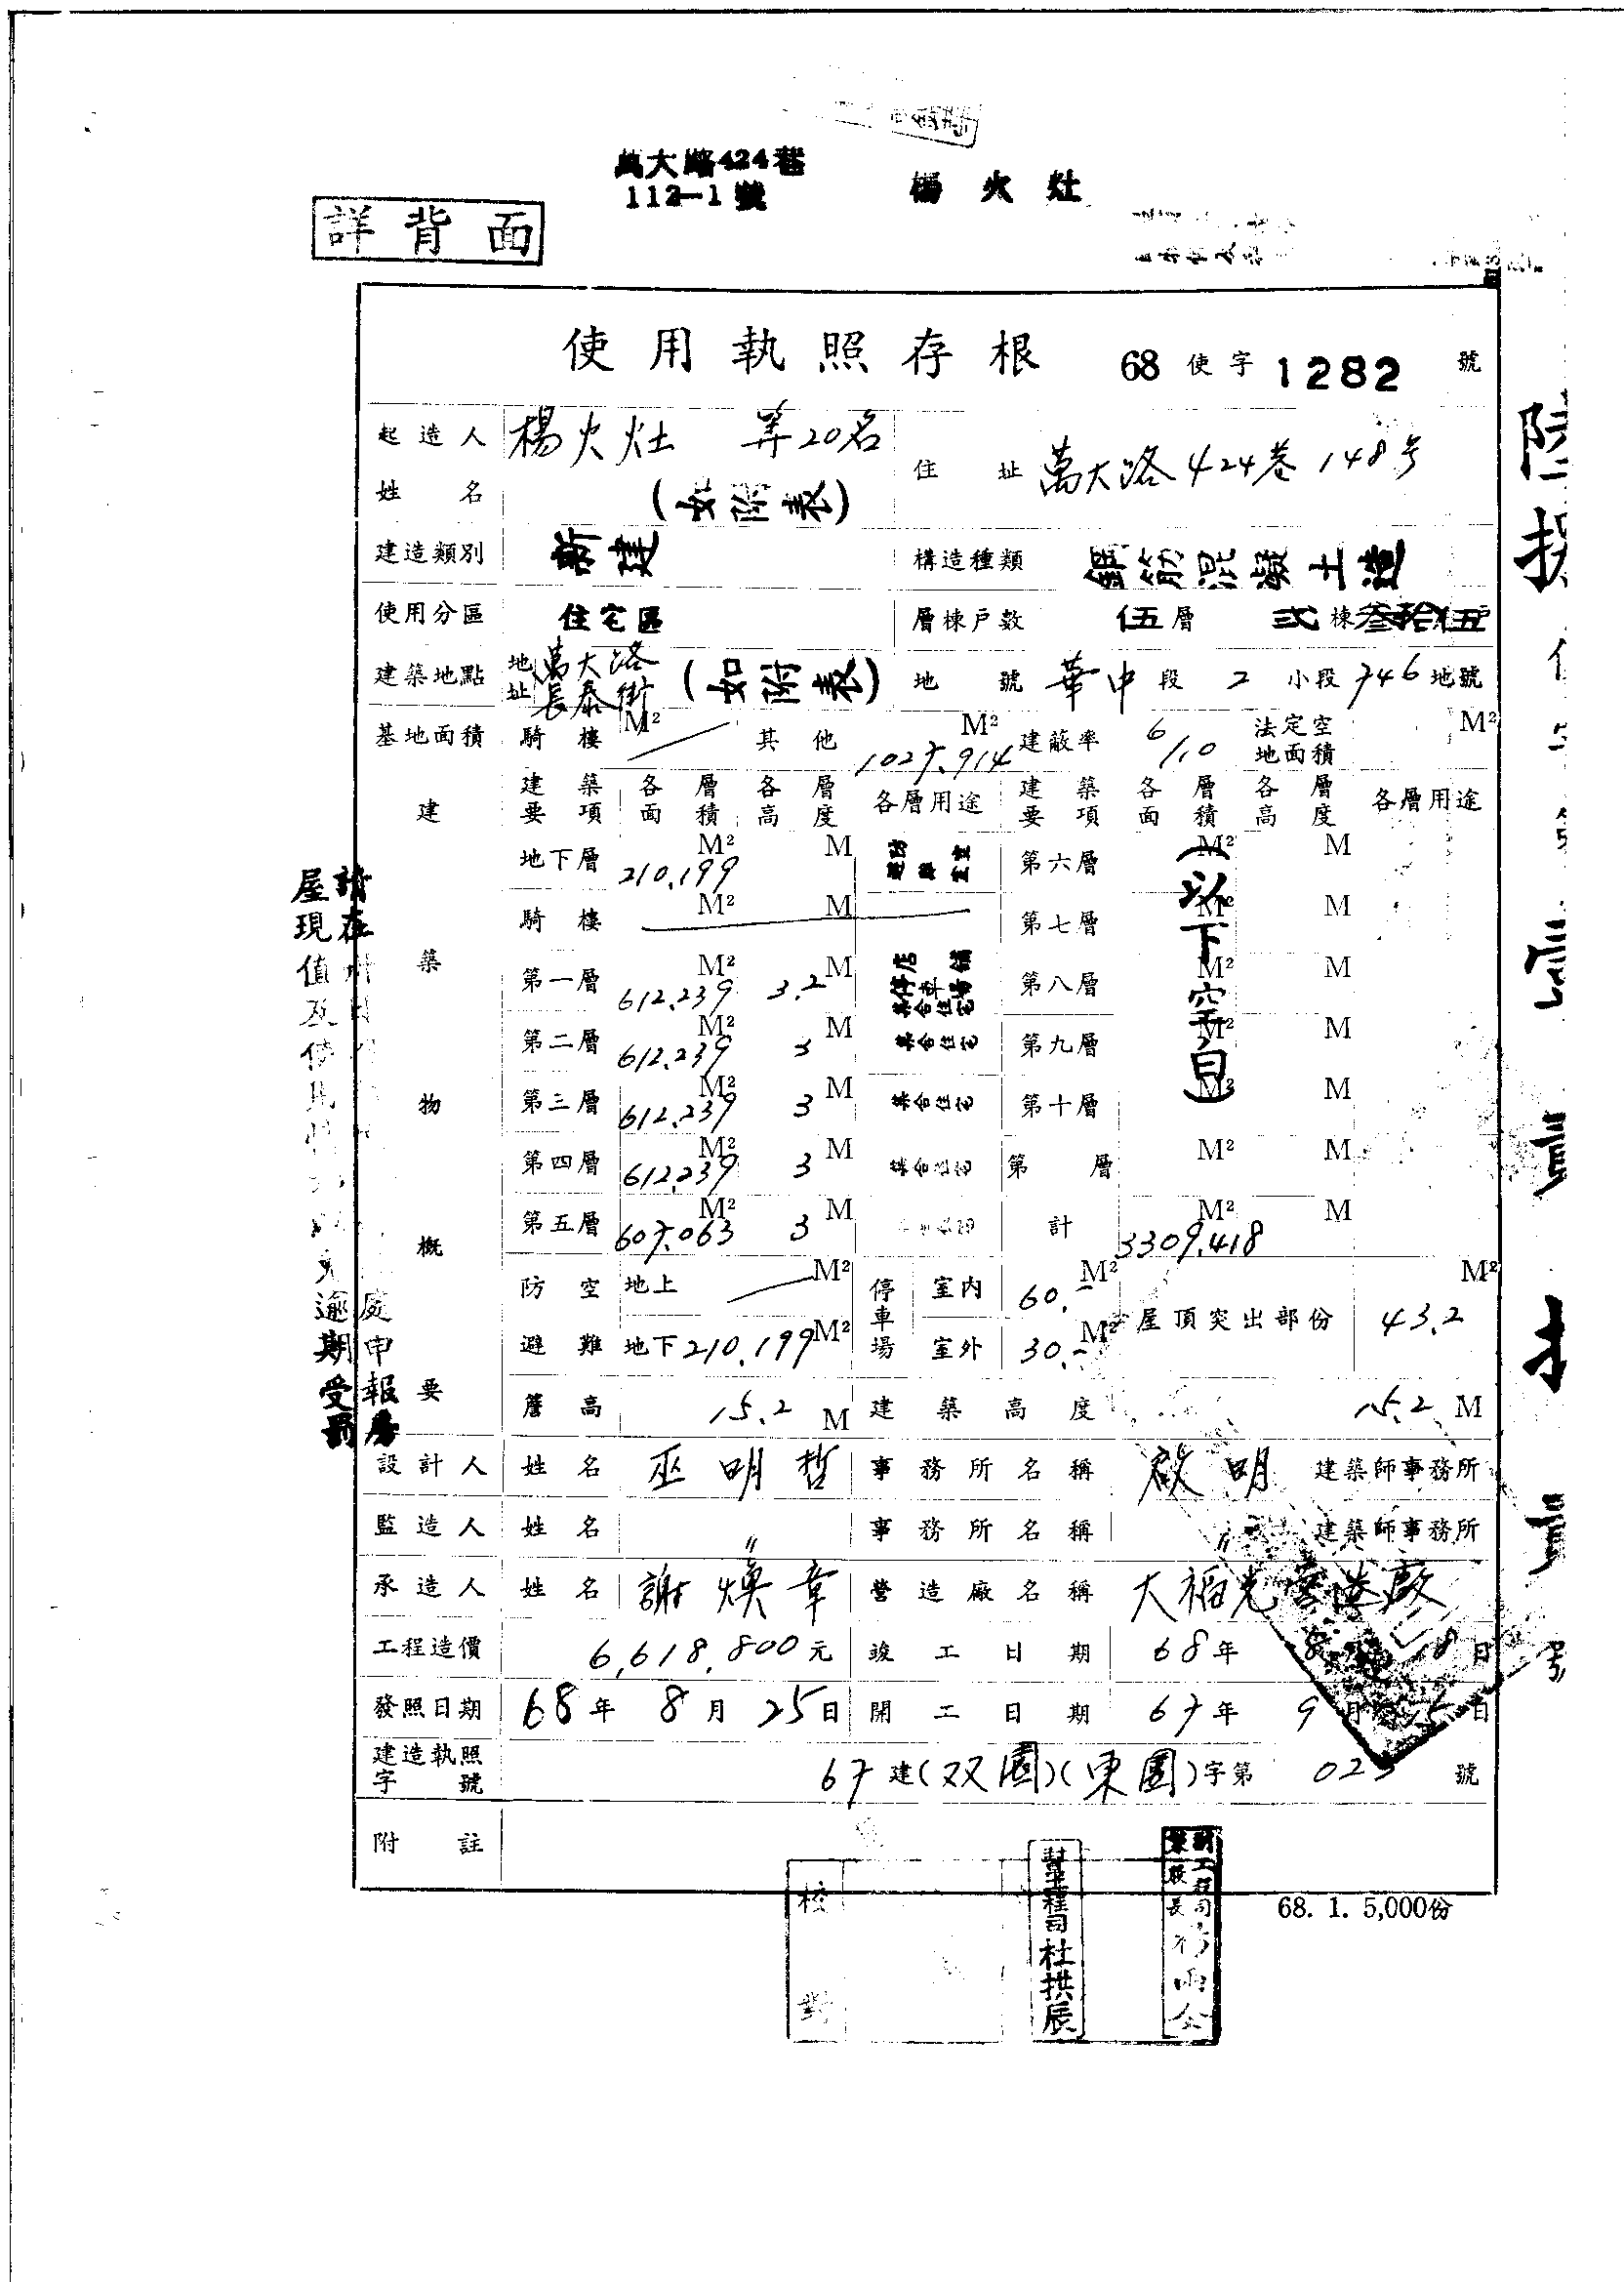 萬大路424巷
112-1號
楊火灶
詳背面
使用執照存根 68使字1282號
起造人姓名 楊火灶 等20名 (如附表) 住址 萬大路424巷148号
建造類別 新建 構造種類 鋼筋混凝土造
使用分區 住宅區 層棟戶數 伍層 弍棟叁拾伍戶
建築地點 地址 萬大路 長泰街 (如附表) 地號 華中段2小段746地號
基地面積 騎樓 M² 其他 1027.914 M² 建蔽率 6/10 法定空地面積 M²
建築物概要
建築要項 各層面積 各層高度 各層用途 建築要項 各層面積 各層高度 各層用途
地下層 210.199 M² M 第六層 M² M
騎樓 M² M 第七層 M² M
第一層 612.239 M² 3.2 M 店舖 停車場 集合住宅 第八層 M² M
第二層 612.239 M² 3 M 集合住宅 第九層 M² M
第三層 612.239 M² 3 M 集合住宅 第十層 M² M
第四層 612.239 M² 3 M 集合住宅 第 層 M² M
第五層 607.063 M² 3 M 計 3309.418 M² M
(以下空白)
防空避難 地上 M² 停車場 室內 60.- M² 屋頂突出部份 43.2 M²
地下 210.199 M² 室外 30.- M²
簷高 15.2 M 建築高度 15.2 M
設計人 姓名 巫明哲 事務所名稱 啟明 建築師事務所
監造人 姓名 〃 事務所名稱 〃 建築師事務所
承造人 姓名 謝煥章 營造廠名稱 大福光營造廠
工程造價 6,618,800元 竣工日期 68年8月18日
發照日期 68年8月25日 開工日期 67年9月 日
建造執照字號 67建(双園)(東園)字第 號
附註
校對
杜拱辰
68. 1. 5,000份